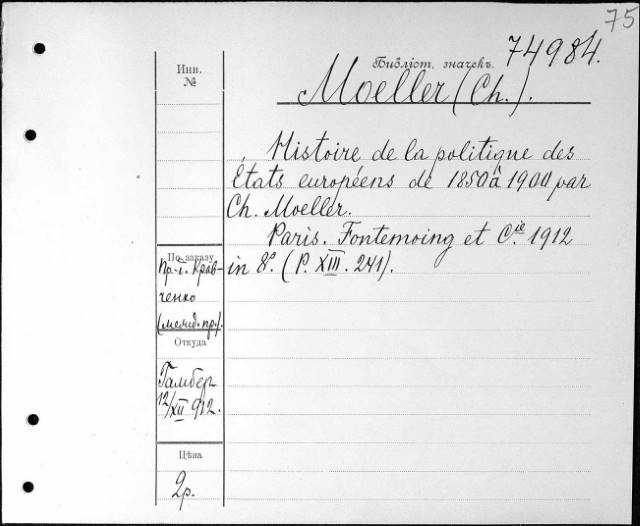 75
Инв.
№
Библіот. значекъ.
74984.
Moeller (Ch.).
Histoire de la politique des
États européens de 1850 à 1900 par
Ch. Moeller.
Paris. Fontemoing et Cie. 1912
in 8°. (P. XIII. 241).
По заказу
пр.-г. Крав-
ченко
(межд. пр.).
Откуда
Гамбер
12/XII 912.
Цѣна
2р.